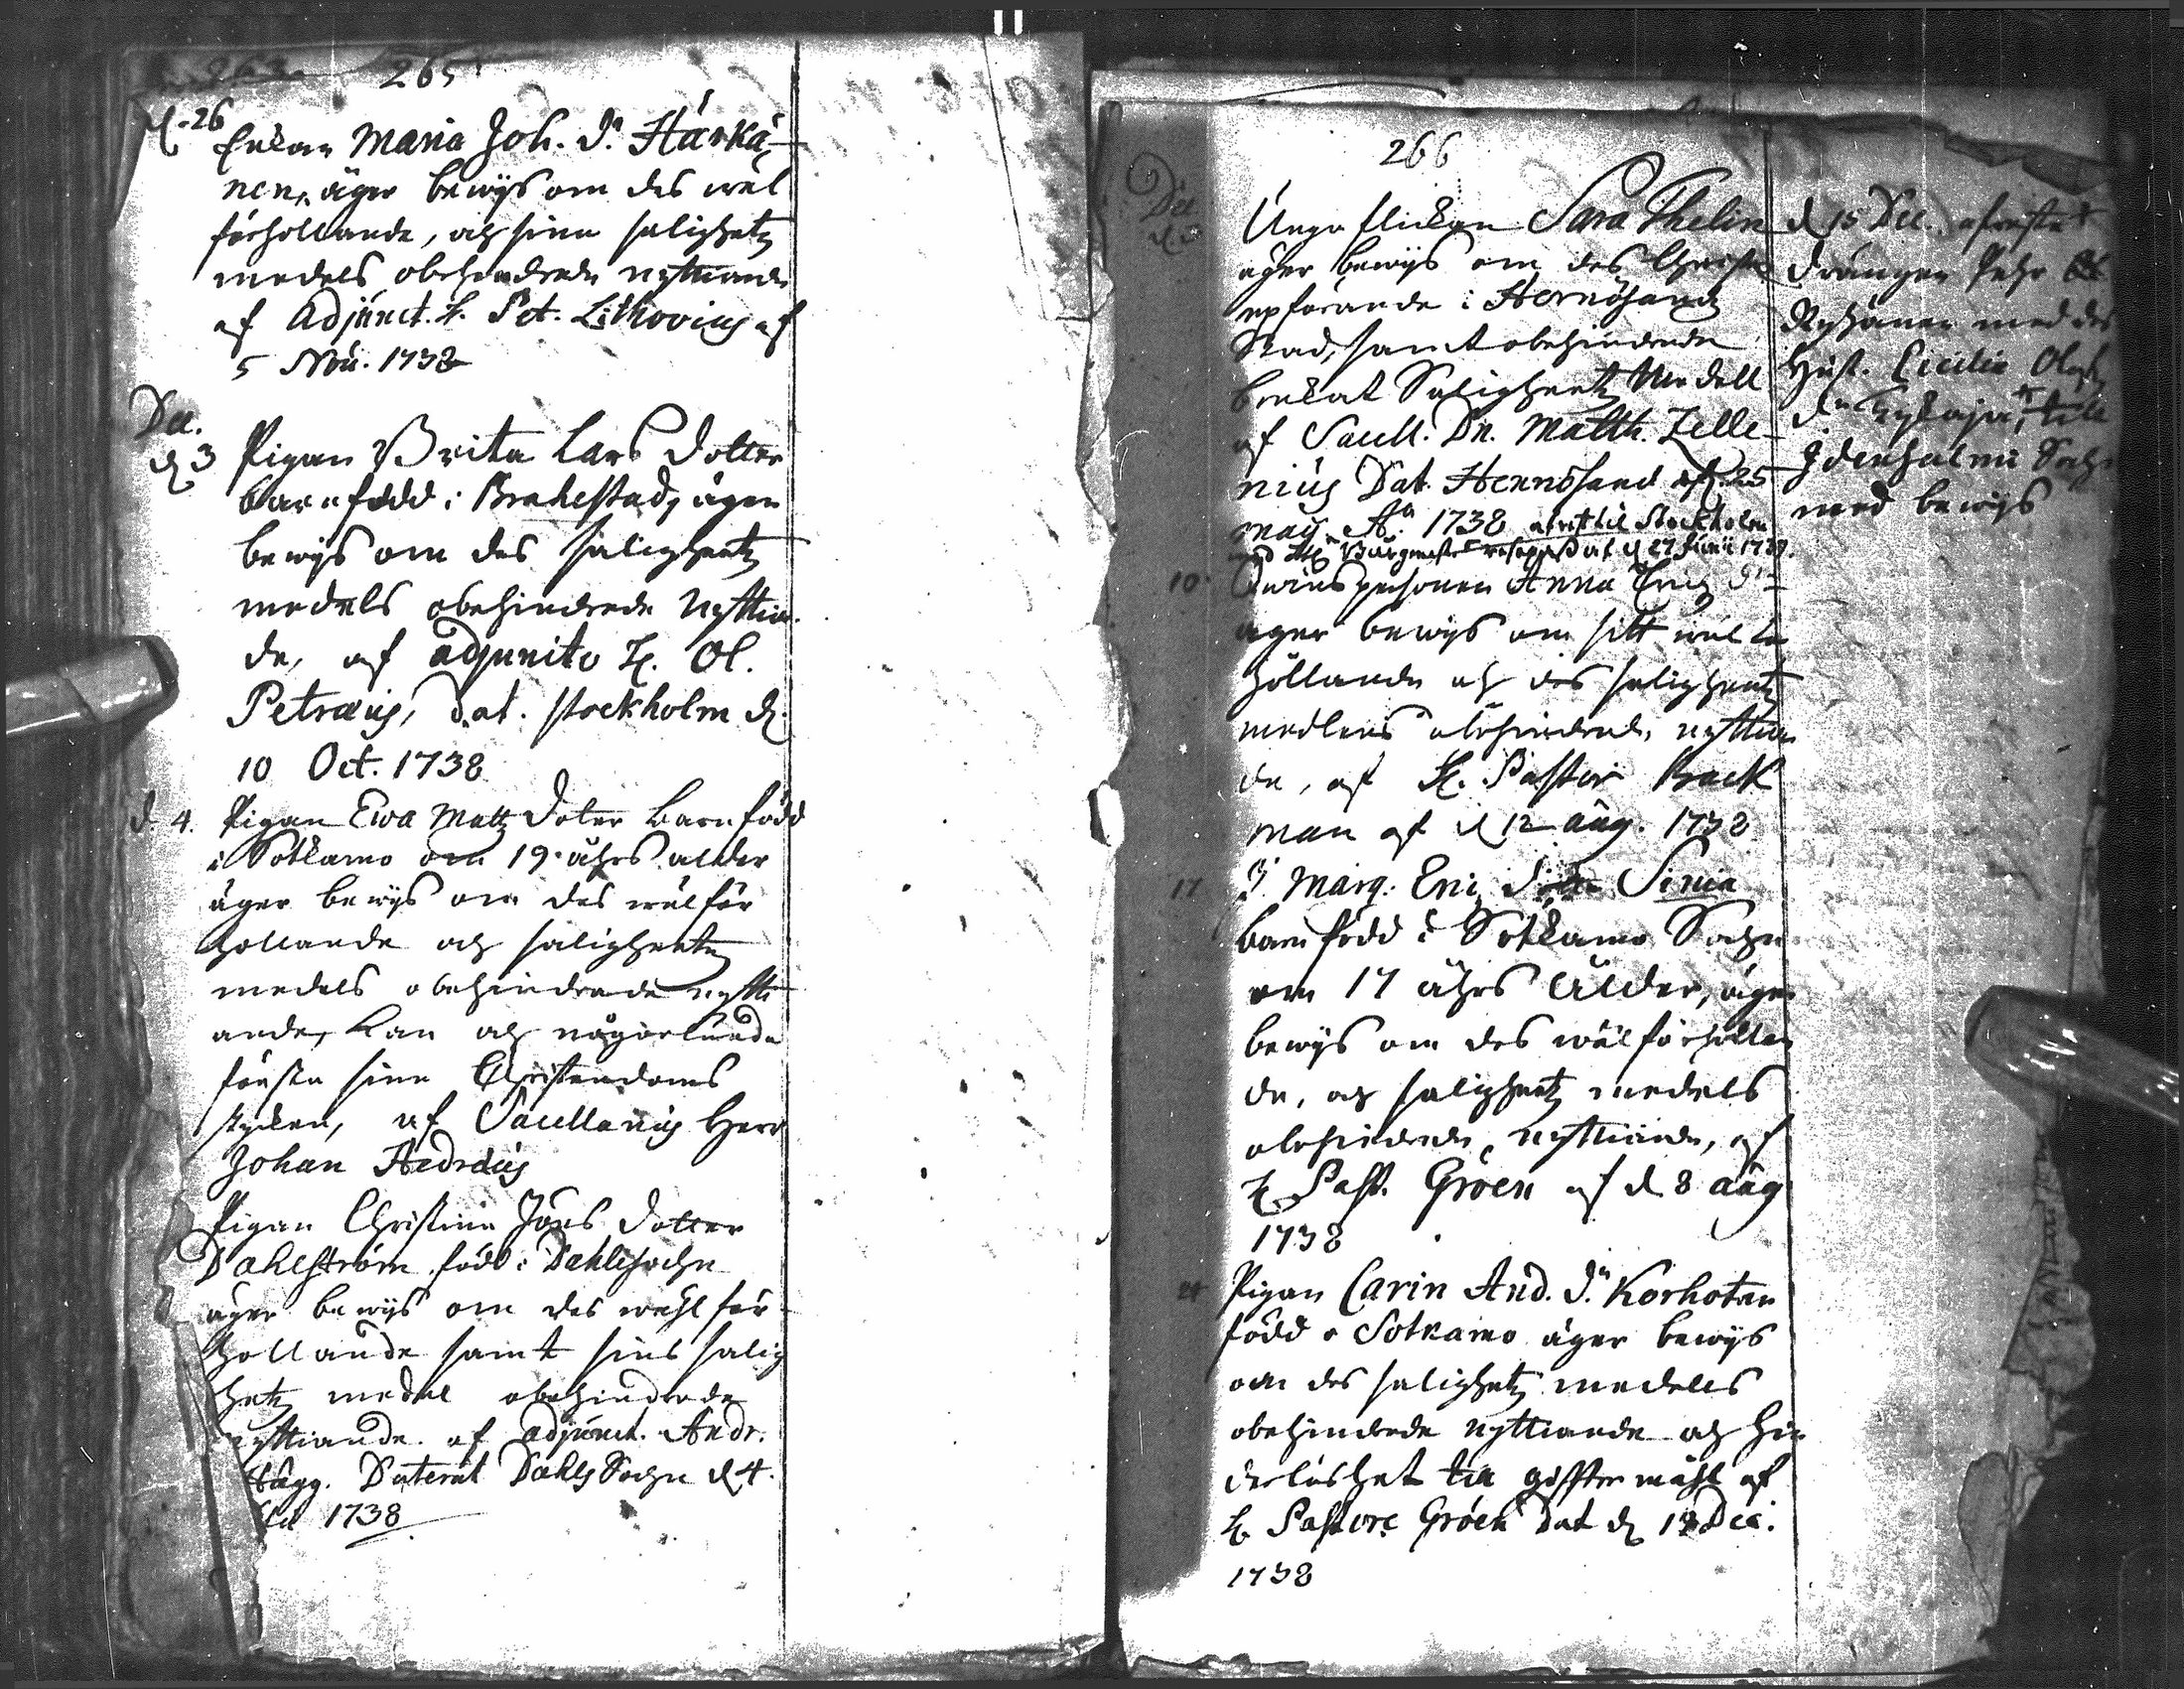 263 265
d. 26
Enkan Maria Joh. dr. Härkä-
nen, äger bewijs om des wäl
förhollande, och sinn salighetz
medels obehindrade nyttiande
af Adjunct. H. Pet. Lithovius af
5 Nov. 1738
Dec.
d 3 Pigan Brita Lars dotter
barnfödd i Brahestad, äger
bewijs om des salighetz
medels obehindrade nyttian-
de, af adjuncto H. Ol.
Petræus, dat. Stockholm d.
10 Oct. 1738
d. 4. Pigan Ewa Mattz doter barnfödd
i Sotkamo om 19. åhrs alder
äger bewijs om des wälför
hollande och salighetz
medels obehindrade nytti
ande, kan och någorlunda
förstå sine Christendoms
stycken, af Sacellanus Herr
Johan
Pigan Christina Jöns dotter
Dahlström född i Dahlesochn
äger bewijs om des wehl för-
hollande samt sins salig
hetz medel obehindrade
nyttiande. af adjunct. Andr.
Bägg. Daterat Dahls Sochn d 4.
1738
266
Dec
Unga flickan Sara Thelin
äger bewijs om des Christe
upförande i Hernösands
Stad, samt obehindrade
brukat Salighetz Medell
af Sacell. Dn. Matth. Zelle-
nius Dat. Hernösand d. 25
Maij Ao. 1738 afrest til Stockholm
med H. Burgmest. respass af d 27 Junii 1739.
10. Qwinspersonen Anna Erics dr
äger bewijs om sitt wäl för
hollande och des salighetz
medlens obehindrade nyttian
de, af H. Pastor Back
man af d 12 aug. 1738
17 P. Marg. Erics doter Sinia
barnfödd i Sotkamo Sochn
om 17 åhrs ålder, äger
bewijs om des wälförhollan
de, och salighetz medels
obehindrade nyttiande, af
H. Past. Gröen af d 8 aug
1738
21 Pigan Carin And. dr. Korhotar
född i Sotkamo äger bewijs
om des salighetz medels
obehindrade nyttiande och hin
derlöshet till gifftermåhl af
H. Pastore Gröen dat d 13 Dec.
1738
d 15 Dec. afreste
drängen Pehr
Ryhänen med des
Hust. Cecilia Olofz
dr Kykajain, till
Idensalmi Sochn
med bewijs